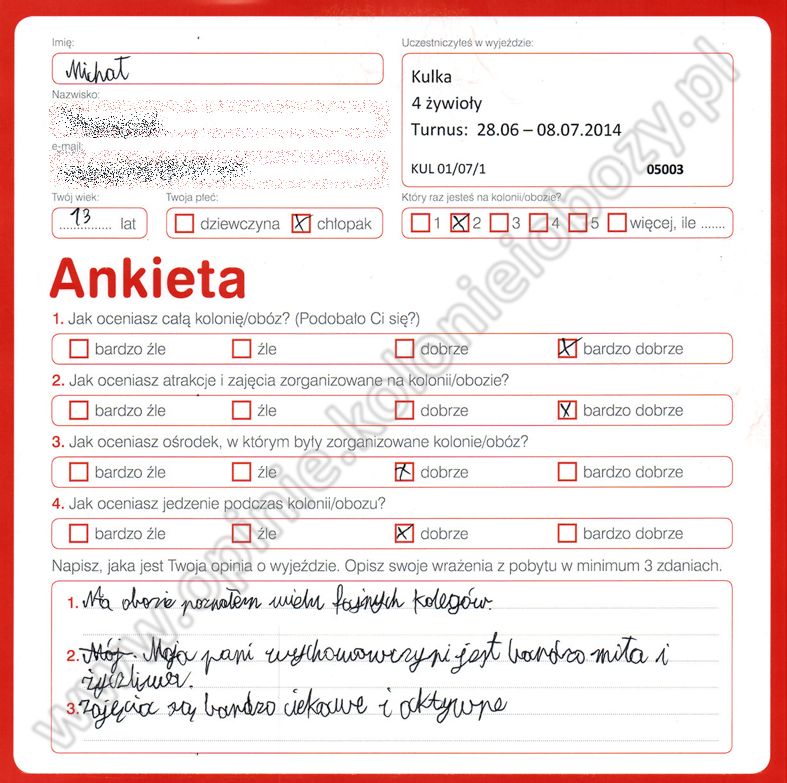 Imię:
Michał
Uczestniczyłeś w wyjeździe:
Kulka
4 żywioły
Turnus: 28.06 – 08.07.2014
KUL 01/07/1 05003
Nazwisko:
e-mail:
Twój wiek:
13 lat
Twoja płeć:
dziewczyna chłopak
Który raz jesteś na kolonii/obozie?
1 2 3 4 5 więcej, ile .......
Ankieta
1. Jak oceniasz całą kolonię/obóz? (Podobało Ci się?)
bardzo źle źle dobrze bardzo dobrze
2. Jak oceniasz atrakcje i zajęcia zorganizowane na kolonii/obozie?
bardzo źle źle dobrze bardzo dobrze
3. Jak oceniasz ośrodek, w którym były zorganizowane kolonie/obóz?
bardzo źle źle dobrze bardzo dobrze
4. Jak oceniasz jedzenie podczas kolonii/obozu?
bardzo źle źle dobrze bardzo dobrze
Napisz, jaka jest Twoja opinia o wyjeździe. Opisz swoje wrażenia z pobytu w minimum 3 zdaniach.
1. Na obozie poznałem wielu fajnych kolegów.
2. Mój. Moja pani wychowawczyni jest bardzo miła i
życzliwa.
3. Zajęcia są bardzo ciekawe i aktywne
www.opinie.kolonieiobozy.pl